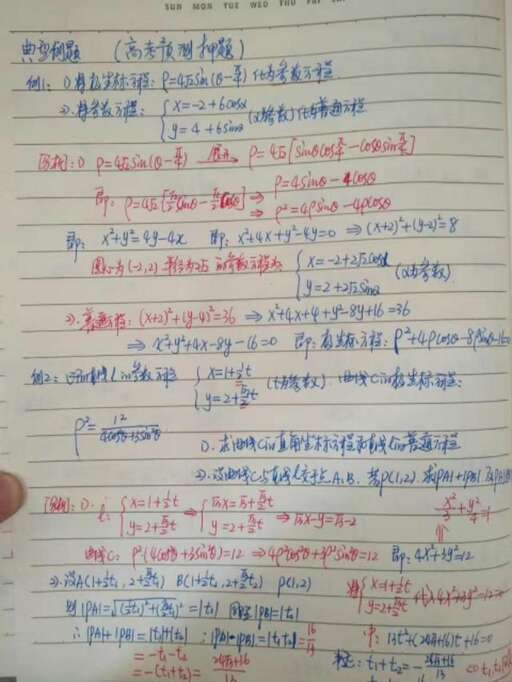 SUN MON TUE WED THU FRI
典型例题 (高考预测押题)
例1: ①将极坐标方程: ρ=4√2sin(θ-π/4) 化为参数方程.
②.将参数方程: { x=-2+6cosα y=4+6sinα (α为参数)化为普通方程
[分析]: ① ρ=4√2sin(θ-π/4) 展开→ ρ=4√2[sinθcosπ/4-cosθsinπ/4]
即: ρ=4√2[√2/2sinθ-√2/2cosθ] ⇒ ρ=4sinθ-4cosθ
⇒ ρ²=4ρsinθ-4ρcosθ
即: x²+y²=4y-4x 即: x²+4x+y²-4y=0 ⇒(x+2)²+(y-2)²=8
圆心为(-2,2) 半径为2√2 的参数方程为 { x=-2+2√2cosα y=2+2√2sinα (α为参数)
②.普通方程: (x+2)²+(y-4)²=36 ⇒ x²+4x+4+y²-8y+16=36
⇒ x²+y²+4x-8y-16=0 即: 极坐标方程: ρ²+4ρcosθ-8ρsinθ-16=0
例2: 已知直线l的参数方程 { x=1+½t y=2+√3/2t (t为参数). 曲线C的极坐标方程:
ρ²=12/4cos²θ+3sin²θ
①. 求曲线C的直角坐标方程和直线l的普通方程
②.设曲线C与直线l交于点A、B. 若P(1,2). 求|PA|+|PB|及|PA||PB|
[分析]: ①. l: { x=1+½t y=2+√3/2t ⇒ { √3x=√3+√3/2t y=2+√3/2t ⇒ √3x-y=√3-2
x²/3+y²/4=1
曲线C: ρ²(4cos²θ+3sin²θ)=12 ⇒ 4ρ²cos²θ+3ρ²sin²θ=12 即: 4x²+3y²=12
②.设A(1+½t₁, 2+√3/2t₁) B(1+½t₂, 2+√3/2t₂) P(1,2)
将 { x=1+½t y=2+√3/2t 代入4x²+3y²=12
则|PA|=√(½t₁)²+(√3/2t₁)²=|t₁| |PB|=|t₂|
中: 13t²+(24√3+16)t+16=0
∴|PA|+|PB|=|t₁|+|t₂| |PA|·|PB|=|t₁t₂|=16/13
t₁+t₂=-24√3+16/13
=-t₁-t₂
=-(t₁+t₂)=